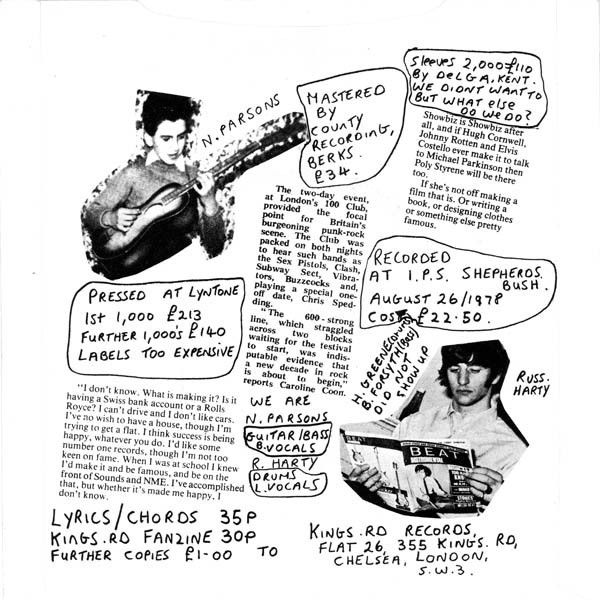 N. PARSONS
MASTERED
BY
COUNTY
RECORDING,
BERKS.
£34.
Sleeves 2,000 £110
BY DELGA, KENT.
WE DIDNT WANT TO
BUT WHAT ELSE
DO WE DO?
Showbiz is Showbiz after
all, and if Hugh Cornwell,
Johnny Rotten and Elvis
Costello ever make it to talk
to Michael Parkinson then
Poly Styrene will be there
too.
If she's not off making a
film that is. Or writing a
book, or designing clothes
or something else pretty
famous.
The two-day event,
at London's 100 Club,
provided the focal
point for Britain's
burgeoning punk-rock
scene. The Club was
packed on both nights
to hear such bands as
the Sex Pistols, Clash,
Subway Sect, Vibra-
tors, Buzzcocks and,
playing a special one-
off date, Chris Sped-
ding.
"The 600-strong
line, which straggled
across two blocks
waiting for the festival
to start, was indis-
putable evidence that
a new decade in rock
is about to begin,"
reports Caroline Coon.
RECORDED
AT I.P.S. SHEPHERDS.
BUSH.
AUGUST 26/1978
COST £22.50.
PRESSED AT LYNTONE
1st 1,000 £213
FURTHER 1,000's £140
LABELS TOO EXPENSIVE
H. GREENE
B. FORSYTH (BVS)
DID NOT
SHOW UP
RUSS.
HARTY
BEAT
INSTRUMENTAL
"I don't know. What is making it? Is it
having a Swiss bank account or a Rolls
Royce? I can't drive and I don't like cars.
I've no wish to have a house, though I'm
trying to get a flat. I think success is being
happy, whatever you do. I'd like some
number one records, though I'm not too
keen on fame. When I was at school I knew
I'd make it and be famous, and be on the
front of Sounds and NME. I've accomplished
that, but whether it's made me happy, I
don't know.
WE ARE
N. PARSONS
GUITAR/BASS
B.VOCALS
R. HARTY
DRUMS
L.VOCALS
LYRICS/CHORDS 35P
KINGS.RD FANZINE 30P
FURTHER COPIES £1-00 TO
KINGS.RD RECORDS,
FLAT 26, 355 KINGS.RD,
CHELSEA, LONDON,
S.W.3.